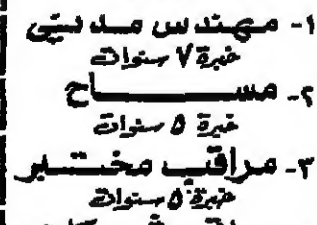 ١- مهندس مدني
خبرة ٧ سنوات
٢- مساح
خبرة ٥ سنوات
٣- مراقب مختبر
خبرة ٥ سنوات